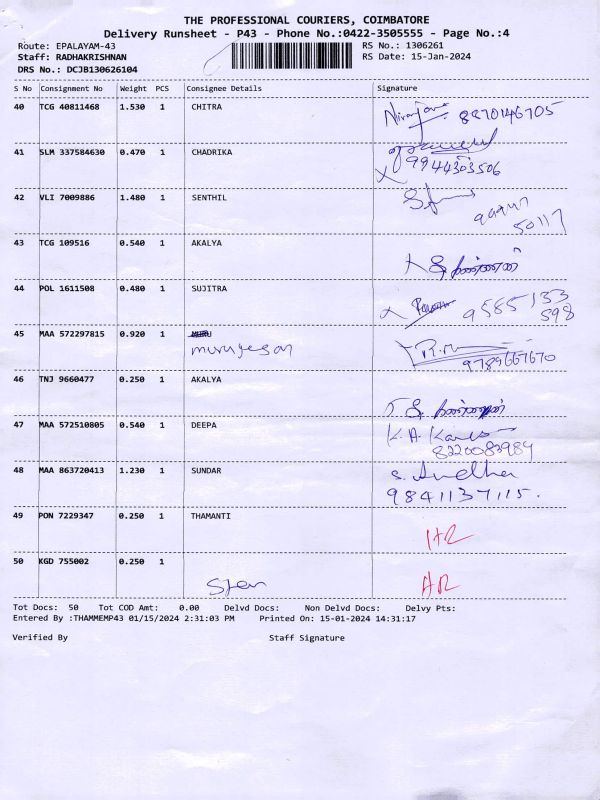 THE PROFESSIONAL COURIERS, COIMBATORE
Delivery Runsheet - P43 - Phone No.:0422-3505555 - Page No.:4
Route: EPALAYAM-43 RS No.: 1306261
Staff: RADHAKRISHNAN RS Date: 15-Jan-2024
DRS No.: DCJB130626104
S No Consignment No Weight PCS Consignee Details Signature
40 TCG 40811468 1.530 1 CHITRA 8870146705
41 SLM 337584630 0.470 1 CHADRIKA
9944303506
42 VLI 7009886 1.480 1 SENTHIL
50117
43 TCG 109516 0.540 1 AKALYA
44 POL 1611508 0.480 1 SUJITRA 9585133
598
45 MAA 572297815 0.920 1 MURU
murugesan
9789667670
46 TNJ 9660477 0.250 1 AKALYA
47 MAA 572510805 0.540 1 DEEPA K.A.
8220083984
48 MAA 863720413 1.230 1 SUNDAR
9841137115.
49 PON 7229347 0.250 1 THAMANTI
50 KGD 755002 0.250 1
Tot Docs: 50 Tot COD Amt: 0.00 Delvd Docs: Non Delvd Docs: Delvy Pts:
Entered By :THAMMEMP43 01/15/2024 2:31:03 PM Printed On: 15-01-2024 14:31:17
Verified By Staff Signature